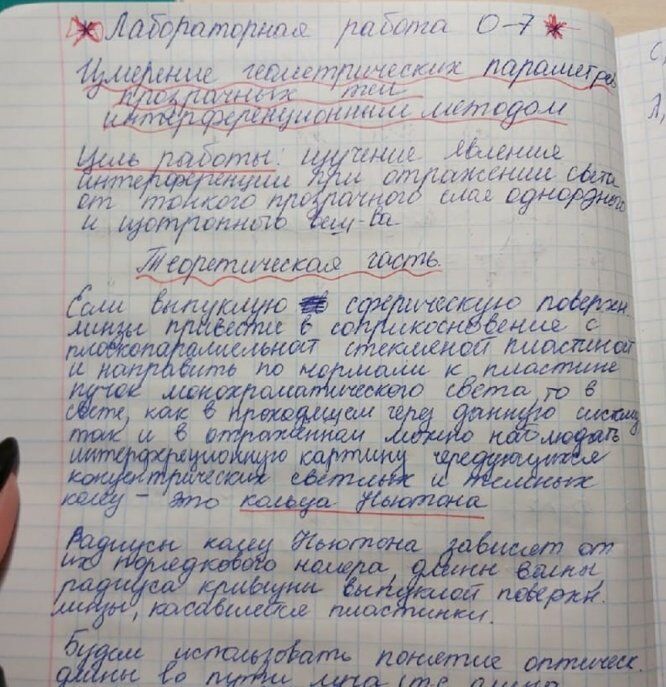 Лабораторная работа О-7
Измерение геометрических параметров
прозрачных тел
интерференционным методом
Цель работы: изучение явления
интерференции при отражении света
от тонкого прозрачного слоя однородного
и изотропного вещ-ва
Теоретическая часть
Если выпуклую сферическую поверхн.
линзы привести в соприкосновение с
плоскопараллельной стекленой пластиной
и направить по нормали к пластине
пучок монохроматического света, то в
свете, как в проходящем через данную систему
так и в отраженном можно наблюдать
интерференционную картину чередующихся
концентрических светлых и темных
колец - это кольца Ньютона
Радиусы колец Ньютона зависят от
их порядкового номера, длины волны,
радиуса кривизны выпуклой поверхн.
линзы, касавшейся пластинки.
Будем использовать понятие оптическ.
длины во пути луча